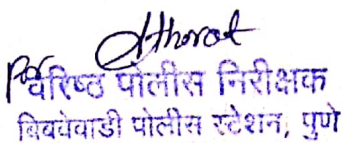 For
वरिष्ठ पोलीस निरीक्षक
बिबवेवाडी पोलीस स्टेशन, पुणे